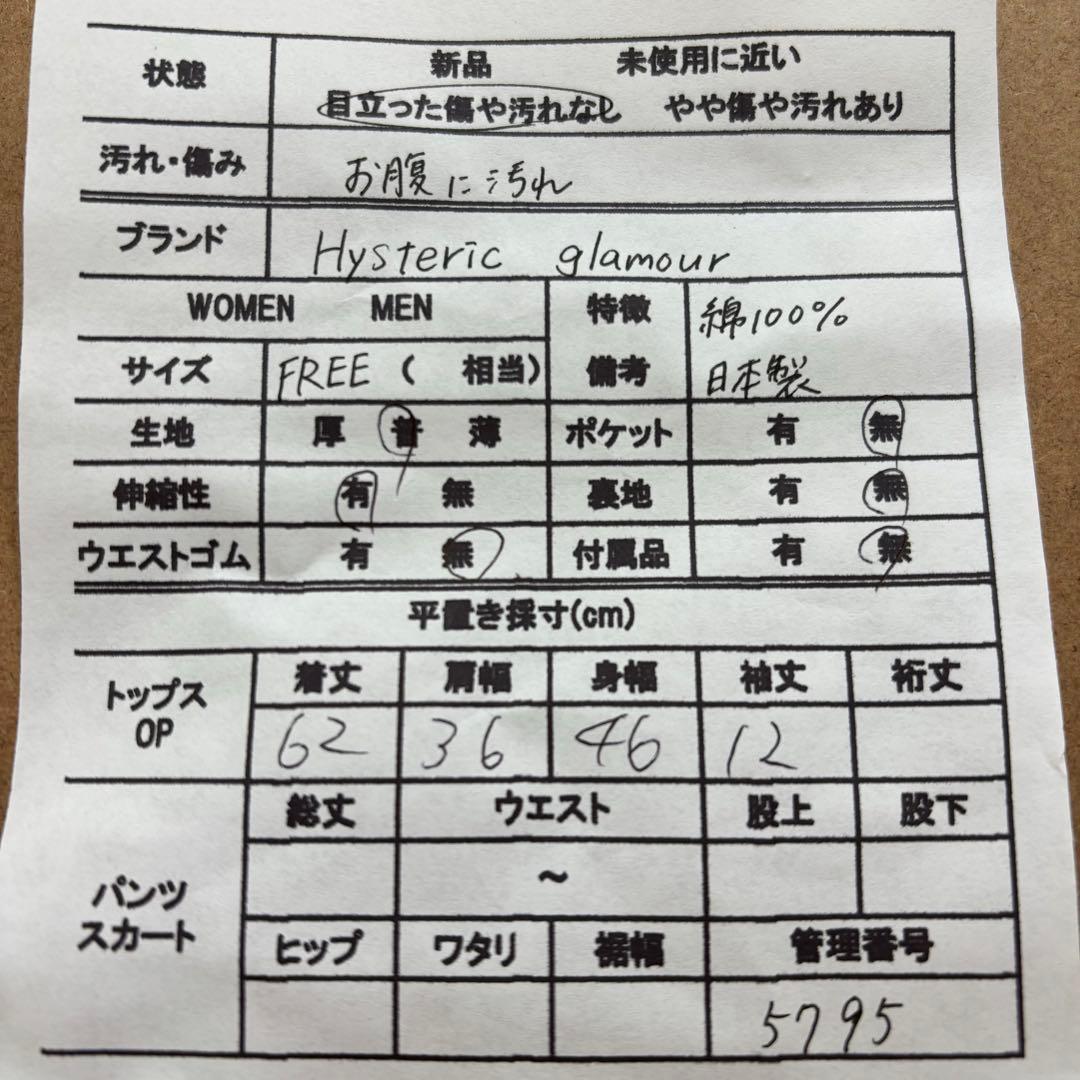 状態 新品 未使用に近い
目立った傷や汚れなし やや傷や汚れあり
汚れ・傷み お腹に汚れ
ブランド Hysteric glamour
WOMEN MEN 特徴 綿100%
サイズ FREE ( 相当) 備考 日本製
生地 厚 普 薄 ポケット 有 無
伸縮性 有 無 裏地 有 無
ウエストゴム 有 無 付属品 有 無
平置き採寸(cm)
トップス OP 着丈 肩幅 身幅 袖丈 裄丈
62 36 46 12
パンツ スカート 総丈 ウエスト 股上 股下
~
ヒップ ワタリ 裾幅 管理番号
5795